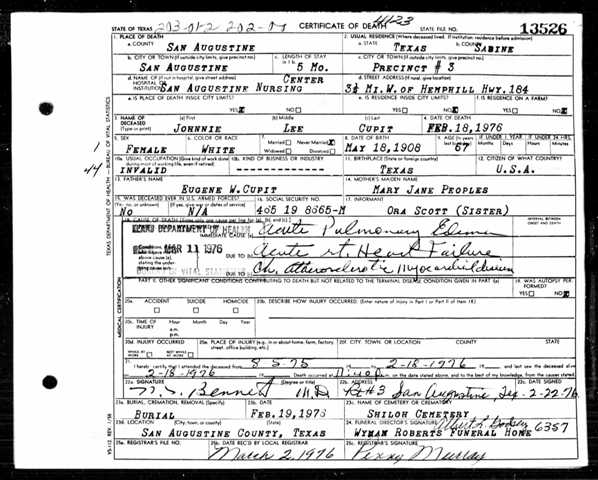 STATE OF TEXAS CERTIFICATE OF DEATH STATE FILE NO. 13526
1. PLACE OF DEATH 2. USUAL RESIDENCE (Where deceased lived. If institution: residence before admission)
a. COUNTY SAN AUGUSTINE a. STATE TEXAS b. COUNTY SABINE
b. CITY OR TOWN (If outside city limits, give precinct no.) c. LENGTH OF STAY c. CITY OR TOWN (If outside city limits, give precinct no.)
SAN AUGUSTINE 5 MO. PRECINCT # 3
d. NAME OF (If not in hospital, give street address) CENTER d. STREET ADDRESS (If rural, give location)
HOSPITAL OR INSTITUTION SAN AUGUSTINE NURSING 3½ MI. W. OF HEMPHILL HWY. 184
e. IS PLACE OF DEATH INSIDE CITY LIMITS? YES NO e. IS RESIDENCE INSIDE CITY LIMITS? YES NO f. IS RESIDENCE ON A FARM? YES NO
3. NAME OF DECEASED (Type or print) (a) First (b) Middle (c) Last 4. DATE OF DEATH
JOHNNIE LEE CUPIT FEB.18,1976
5. SEX 6. COLOR OR RACE 7. Married Never Married Widowed Divorced 8. DATE OF BIRTH 9. AGE IF UNDER 1 YEAR IF UNDER 24 HRS.
FEMALE WHITE MAY 18,1908 67 Months Days Hours Minutes
10a. USUAL OCCUPATION (Give kind of work done during most of working life, even if retired) 10b. KIND OF BUSINESS OR INDUSTRY 11. BIRTHPLACE (State or foreign country) 12. CITIZEN OF WHAT COUNTRY?
INVALID TEXAS U.S.A.
13. FATHER'S NAME 14. MOTHER'S MAIDEN NAME
EUGENE W.CUPIT MARY JANE PEOPLES
15. WAS DECEASED EVER IN U.S. ARMED FORCES? 16. SOCIAL SECURITY NO. 17. INFORMANT
(Yes, no, or unknown) (If yes, give war or dates of service)
NO N/A 465 19 8665-M ORA SCOTT (SISTER)
18. CAUSE OF DEATH [Enter only one cause per line for (a), (b), and (c).] INTERVAL BETWEEN ONSET AND DEATH
TEXAS DEPARTMENT OF HEALTH
IMMEDIATE CAUSE (a) Acute Pulmonary Edema
MAR 11 1976
DUE TO (b) Acute rt. Heart Failure
DUE TO (c) Ch. Atherosclerotic Myocardial disease
PART II. OTHER SIGNIFICANT CONDITIONS CONTRIBUTING TO DEATH BUT NOT RELATED TO THE TERMINAL DISEASE CONDITION GIVEN IN PART I(a) 19. WAS AUTOPSY PERFORMED? YES NO
20a. ACCIDENT SUICIDE HOMICIDE 20b. DESCRIBE HOW INJURY OCCURRED. (Enter nature of injury in Part I or Part II of item 18)
20c. TIME OF INJURY Hour Month Day Year
a.m.
p.m.
20d. INJURY OCCURRED WHILE AT WORK NOT WHILE AT WORK 20e. PLACE OF INJURY (e.g. in or about home, farm, factory, street, office building, etc.) 20f. CITY, TOWN, OR LOCATION COUNTY STATE
21. I hereby certify that I attended the deceased from 8-5-75 2-18-1976 and last saw the deceased alive
2-18-1976 Death occurred at on the date stated above, and to the best of my knowledge, from the causes stated.
22a. SIGNATURE (Degree or title) 22b. ADDRESS 22c. DATE SIGNED
Bennett M.D. Rt #3 San Augustine Tex 2-22-76
23a. BURIAL, CREMATION, REMOVAL (Specify) 23b. DATE 23c. NAME OF CEMETERY OR CREMATORY
BURIAL FEB.19,1976 SHILOH CEMETERY
23d. LOCATION (City, town, or county) (State) 24. FUNERAL DIRECTOR'S SIGNATURE 6357
SAN AUGUSTINE COUNTY, TEXAS WYMAN ROBERTS FUNERAL HOME
25a. REGISTRAR'S FILE NO. 25b. DATE REC'D BY LOCAL REGISTRAR 25c. REGISTRAR'S SIGNATURE
March 2, 1976 Penny Murray
TEXAS DEPARTMENT OF HEALTH — BUREAU OF VITAL STATISTICS
MEDICAL CERTIFICATION
1
44